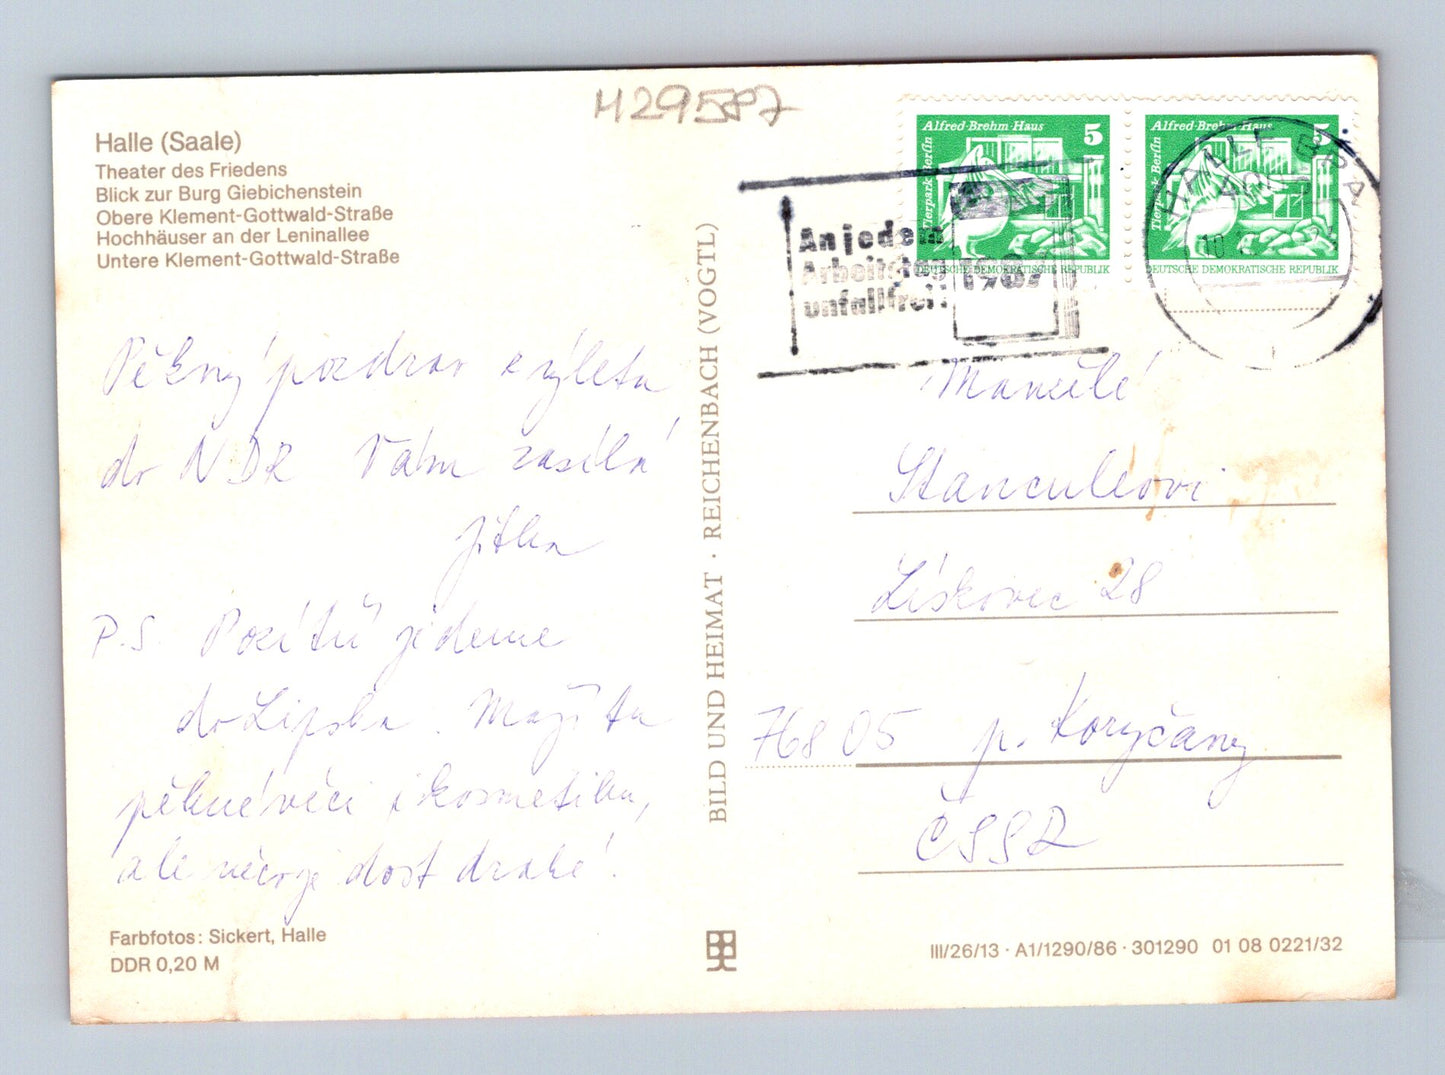 H29587
Halle (Saale)
Theater des Friedens
Blick zur Burg Giebichenstein
Obere Klement-Gottwald-Straße
Hochhäuser an der Leninallee
Untere Klement-Gottwald-Straße
Pěkný pozdrav z výletu
do NDR Vám zasílá
Jitka
P.S. Pozítří jedeme
do Lipska. Mají tu
pěkné věci i kosmetiku,
ale něco je dost drahé!
Farbfotos: Sickert, Halle
DDR 0,20 M
BILD UND HEIMAT · REICHENBACH (VOGTL)
Alfred-Brehm-Haus 5
Tierpark Berlin
DEUTSCHE DEMOKRATISCHE REPUBLIK
Alfred-Brehm-Haus 5
Tierpark Berlin
DEUTSCHE DEMOKRATISCHE REPUBLIK
An jedem
Arbeitstag
unfallfrei!
1987
HALLE
Manželé
Stanculeovi
Lískovec 28
768 05 p. Koryčany
ČSSR
III/26/13 · A1/1290/86 · 301290 01 08 0221/32